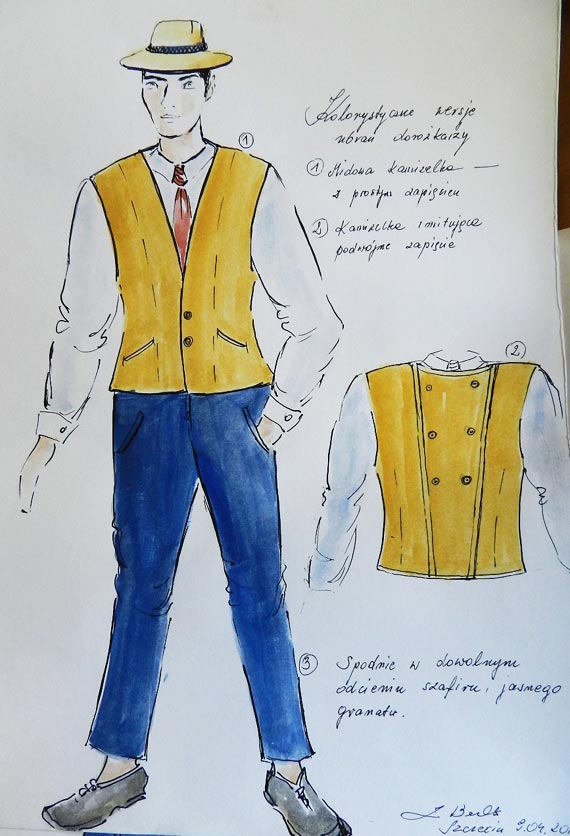 ①
Kolorystyczne wersje
ubrań dorożkarzy
① Miodowa kamizelka —
z prostym zapięciem
② Kamizelka imitująca
podwójne zapięcie
②
③ Spodnie w dowolnym
odcieniu szafiru, jasnego
granatu.
Szczecin 9.04.20